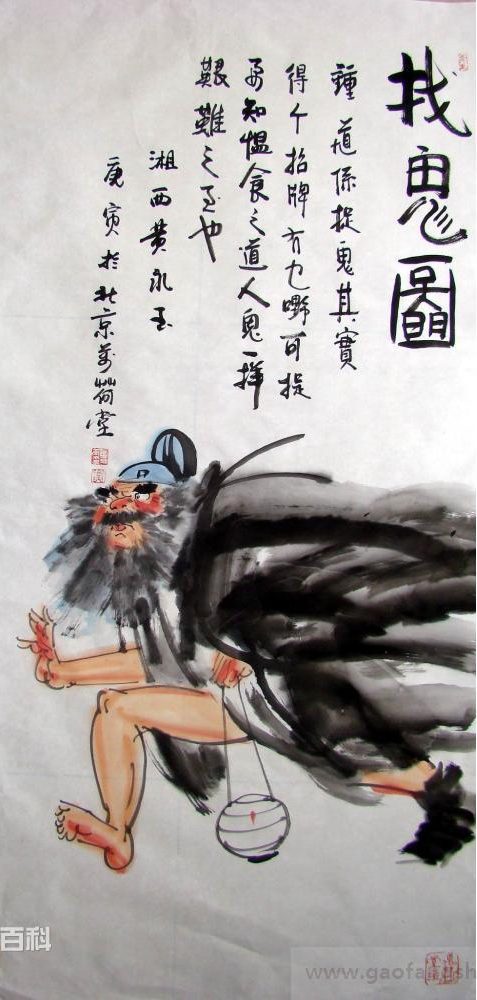 找鬼圖
鍾馗係捉鬼其實
得个招牌冇乜嘢可捉
要知揾食之道人鬼一樣
艱難之至也
湘西黄永玉
庚寅於北京萬荷堂
百科
www.gaofa